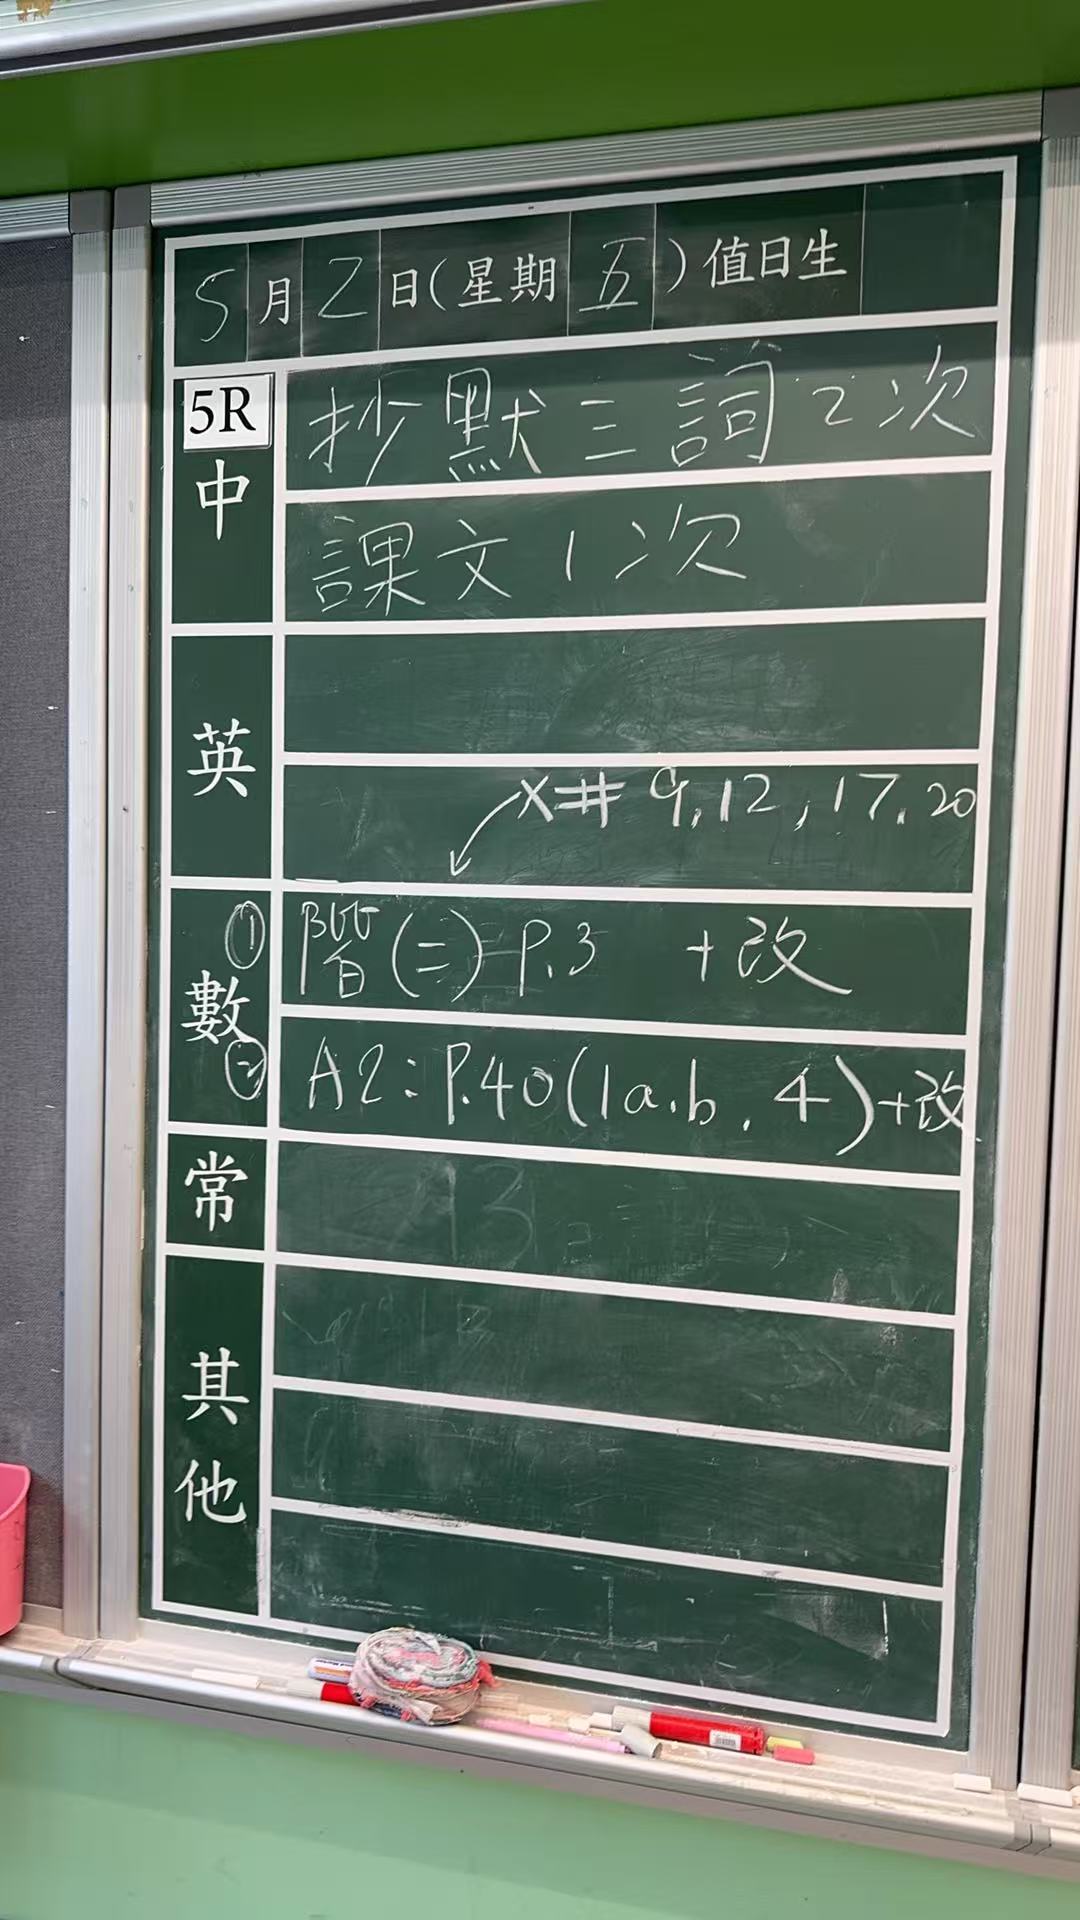 5月2日(星期五)值日生
5R
中
抄默三詞2次
課文1次
英
x# 9,12,17,20
數
① 階(二) P.3 +改
② A2: P.40(1a.b, 4)+改
常
其他